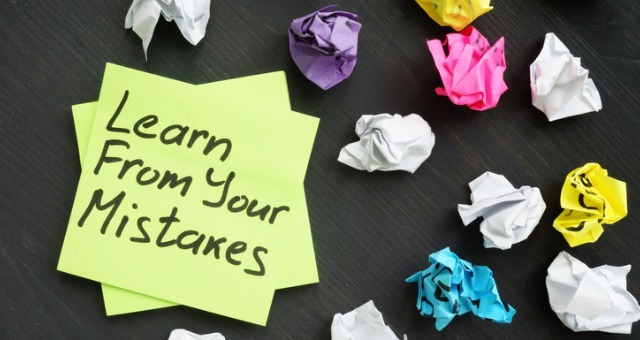 Learn
From Your
Mistakes